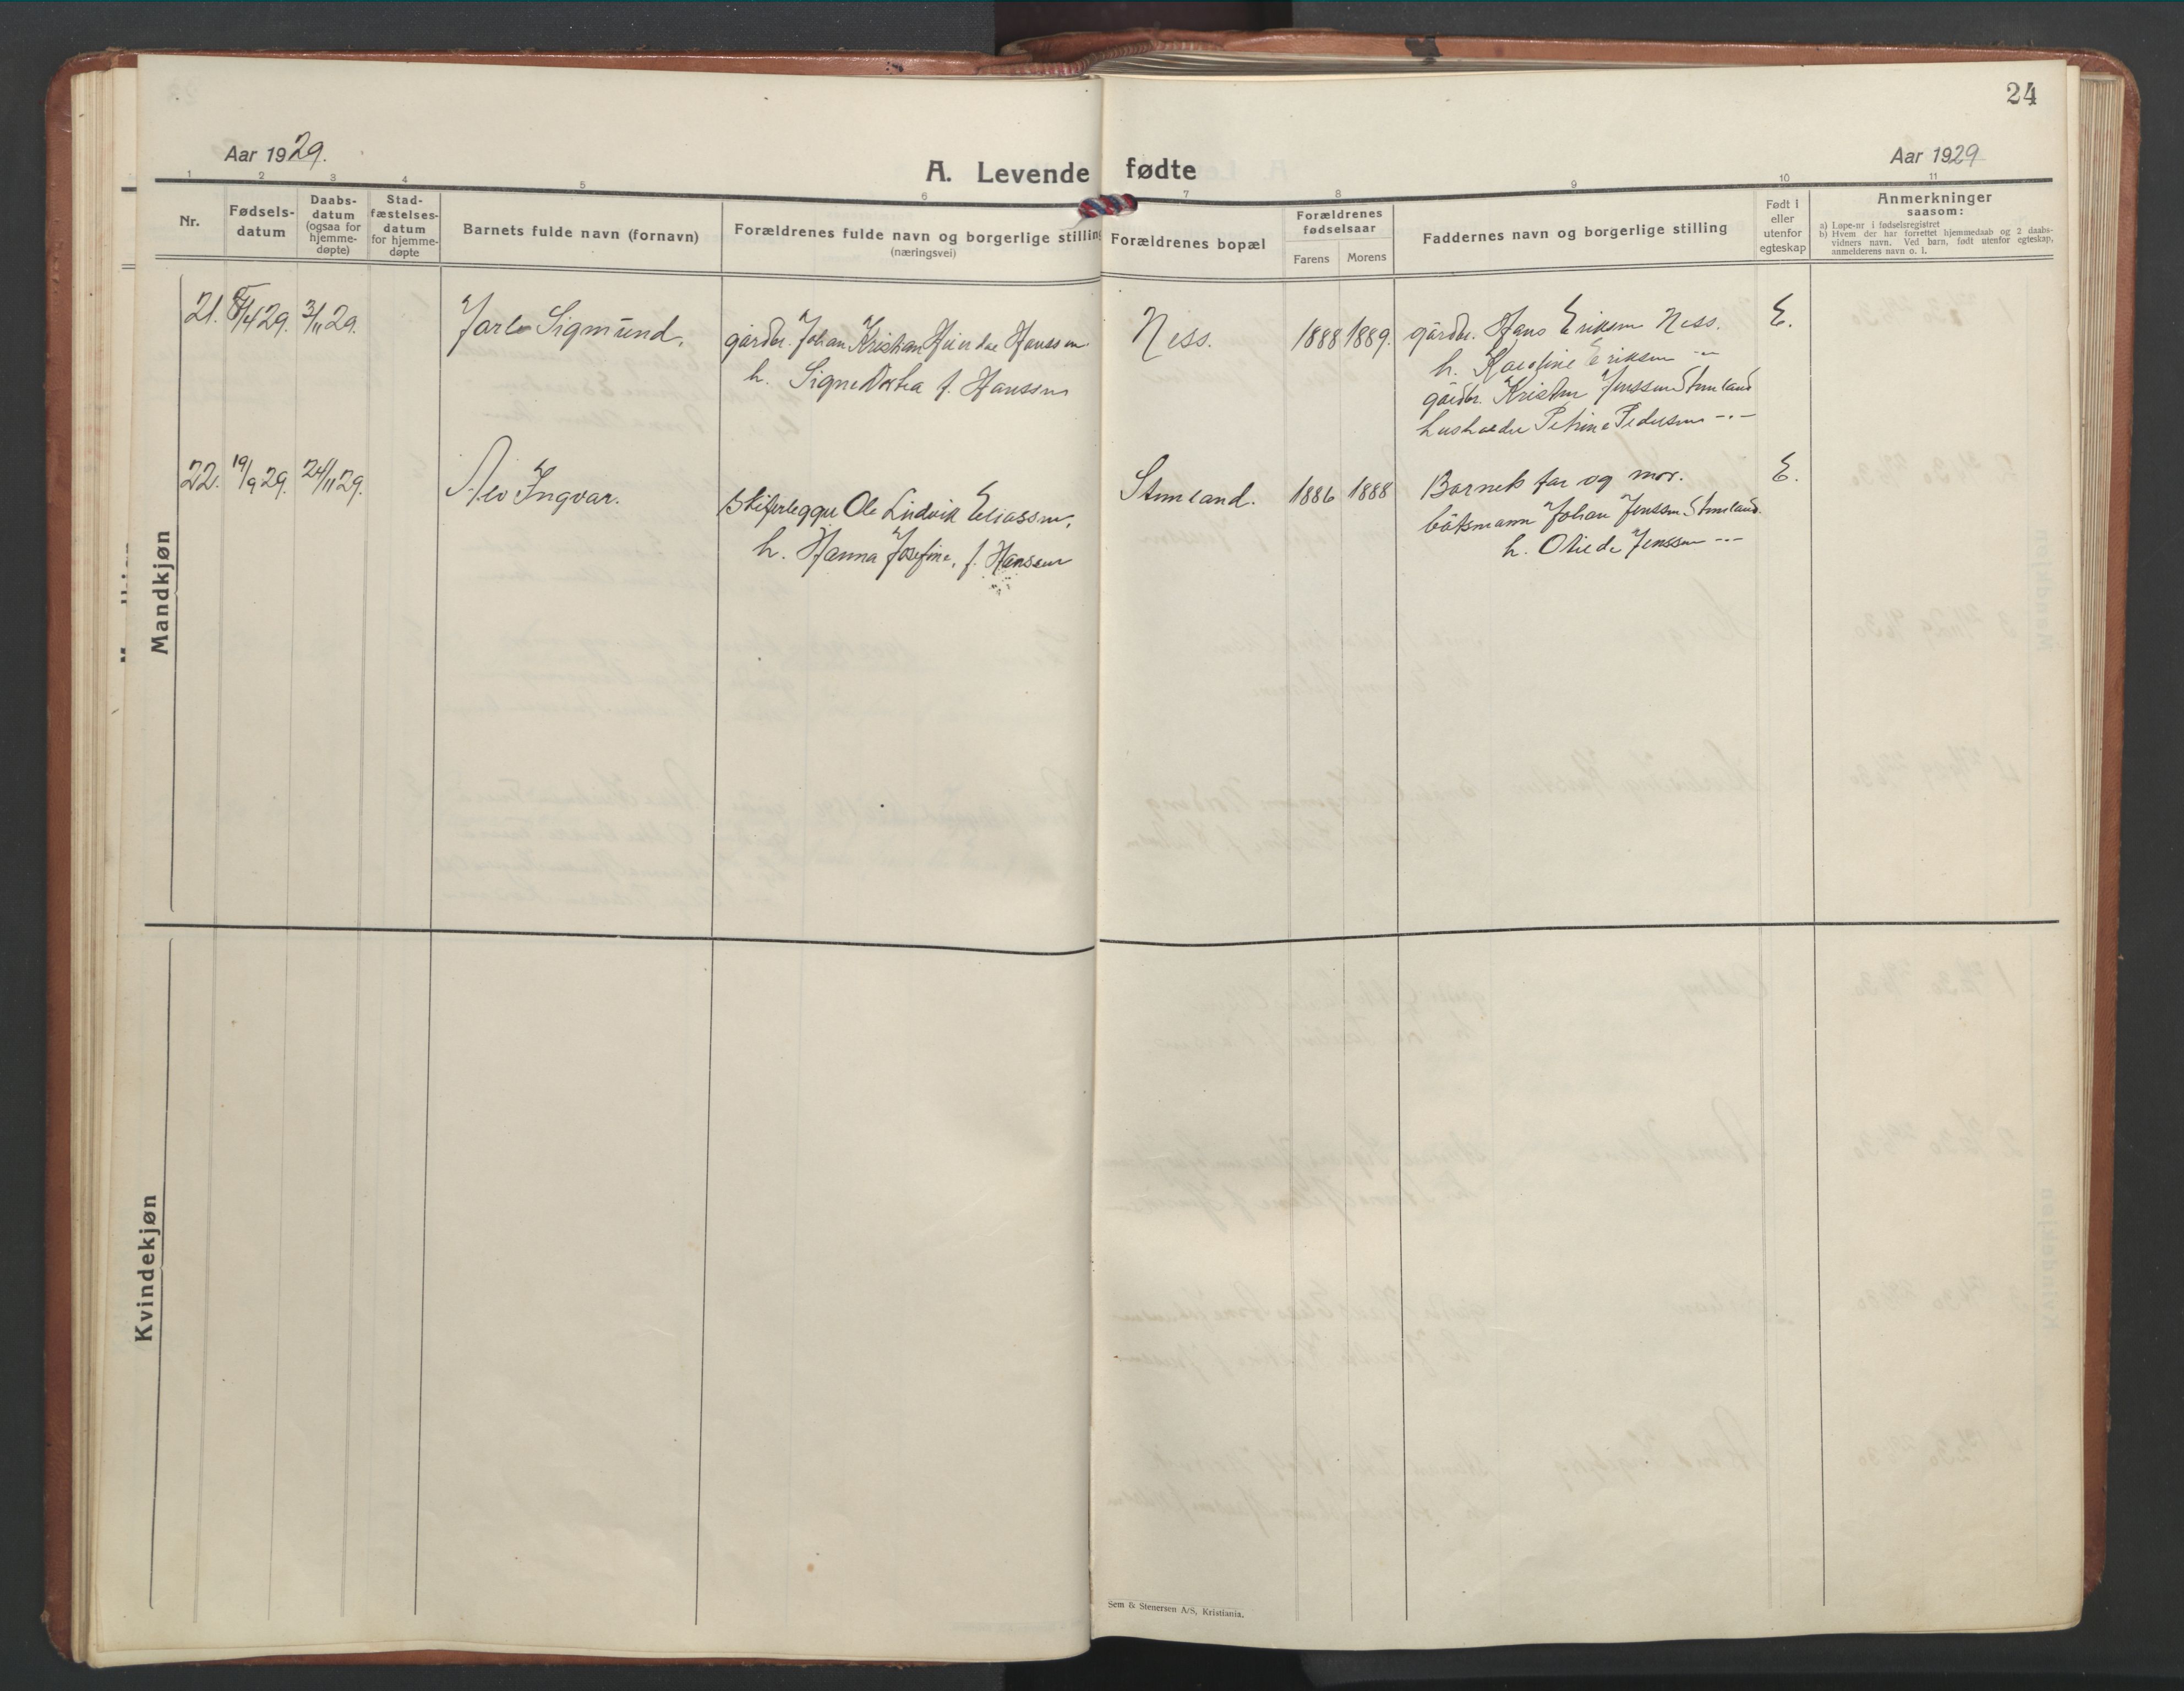 24
Aar 1929.
A. Levende fødte
Aar 1929
1 2 3 4 5 6 7 8 9 10 11
Nr.
Fødsels-
datum
Daabs-
datum
(ogsaa for
hjemme-
døpte)
Stad-
fæstelses-
datum
for hjemme-
døpte
Barnets fulde navn (fornavn)
Forældrenes fulde navn og borgerlige stilling
(næringsvei)
Forældrenes bopæl
Forældrenes
fødselsaar
Farens Morens
Faddernes navn og borgerlige stilling
Født i
eller
utenfor
egteskap
Anmerkninger
saasom:
a) Løpe-nr i fødselsregistret
b) Hvem der har forrettet hjemmedaab og 2 daabs-
vidners navn. Ved barn, født utenfor egteskap,
anmelderens navn o. l.
Mandkjøn
21. /4 29. 3/11 29.
Jarle Sigmund.
gårdbr. Johan Kristian Hanssen.
h. Signe Dortea f. Hanssen
Ness.
1888 1889.
gårdbr. Hans Eriksen Ness.
h. Karoline Eriksen -"-
gårdbr. Kristen Jenssen
Petrine Pedersen -"-
E.
22. 19/9 29. 24/11 29.
Alv Ingvar.
Skiferlegger Ole Ludvik Eliassen,
h. Hanna Josefine, f. Hansen
1886 1888
Barnets far og mor.
båtsmann Johan Jenssen
h. Jenssen -"-
E.
Kvindekjøn
Sem & Stenersen A/S, Kristiania.